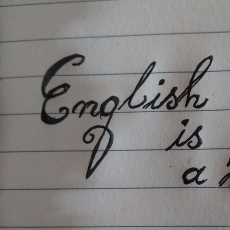 English
is
a